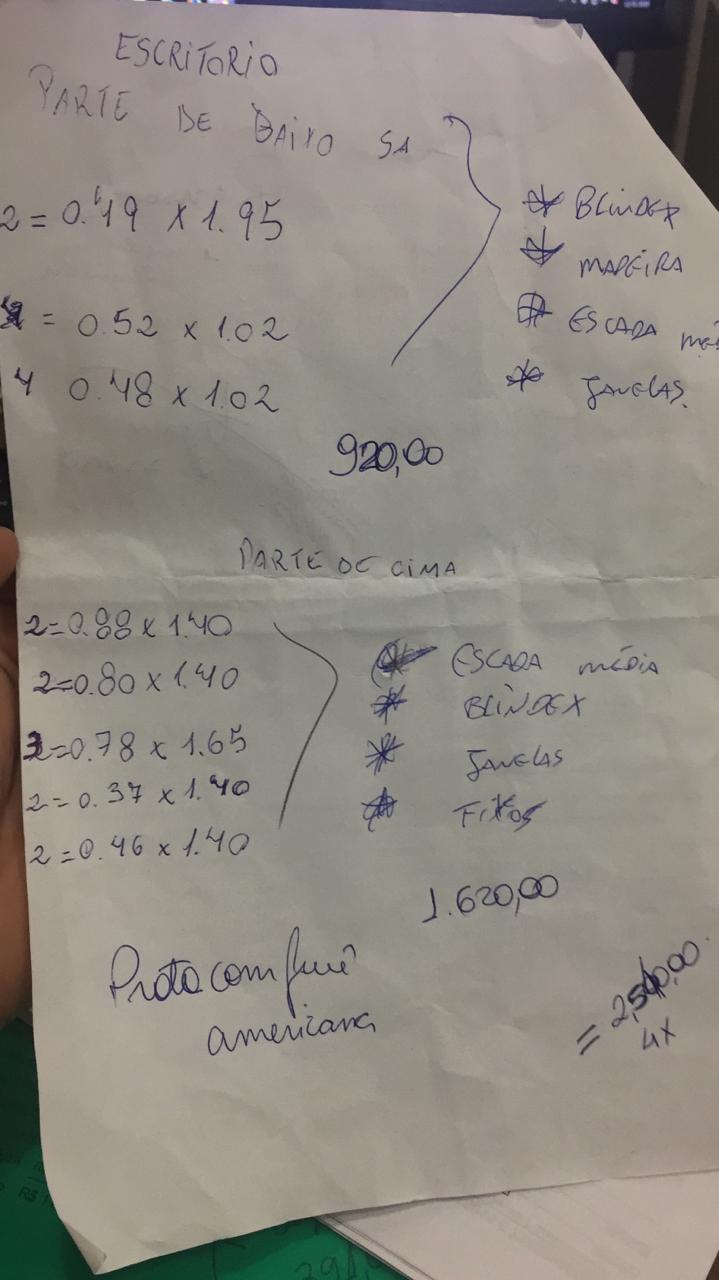 ESCRITORIO
PARTE DE BAIXO SA
2 = 0.49 x 1.95
= 0.52 x 1.02
4 0.48 x 1.02
BLINDEX
MADEIRA
ESCADA mé
JANELAS.
920,00
PARTE DE CIMA
2=0.88 x 1.40
2=0.80 x 1.40
2=0.78 x 1.65
2=0.37 x 1.40
2=0.46 x 1.40
ESCADA média
BLINDEX
JANELAS
FIXOS
1.620,00
americana
= 2,540,00
4x
R$